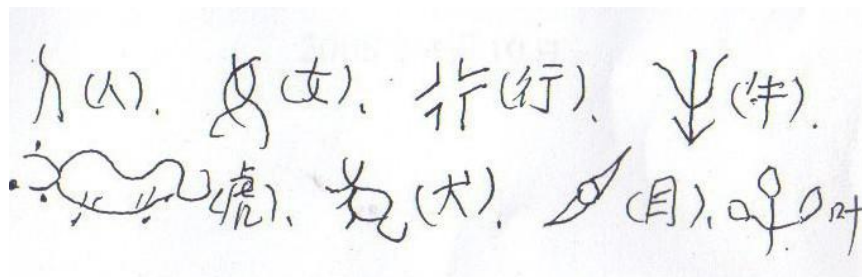 (人)、(女)、(行)、(牛)、
(虎)、(犬)、(目)、叶